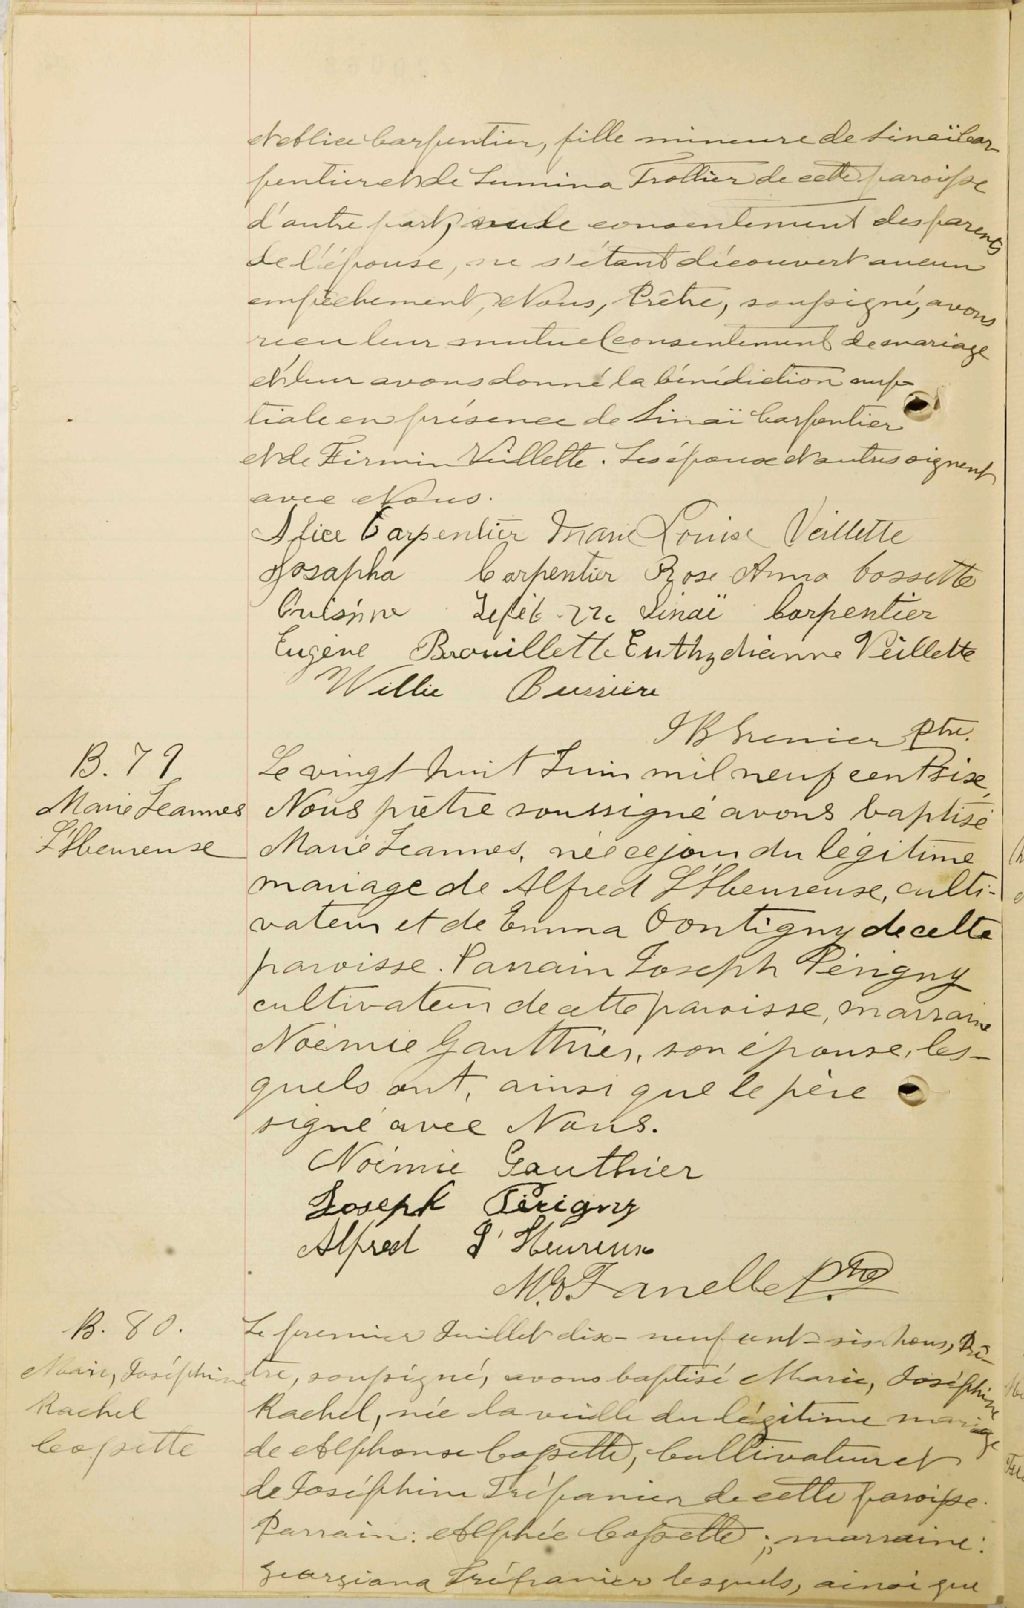 et Alice Carpentier, fille mineure de Sinaï Car-
pentier et de Lumina Trottier de cette paroisse
d'autre part, vu le consentement des parents
de l'épouse, ne s'étant découvert aucun
empêchement, Nous, Prêtre, soussigné, avons
reçu leur mutuel consentement de mariage
et leur avons donné la bénédiction nup-
tiale en présence de Sinaï Carpentier
et de Firmin Veillette. Les époux et autres signent
avec Nous.
Alice Carpentier Marie Louise Veillette
Josapha Carpentier Rose Anna Cossette
Sinaï Carpentier
Eugène Brouillette Euthydianne Veillette
Willie Bussière
J B Grenier Ptre.
B. 79
Marie Jeannes
L'Heureuse
Le vingt huit Juin mil neuf cent six,
Nous prêtre soussigné avons baptisé
Marie Jeannes, née ce jour du légitime
mariage de Alfred L'Heureuse, culti-
vateur et de Emma Dontigny de cette
paroisse. Parrain Joseph Périgny
cultivateur de cette paroisse, marraine
Noémie Gauthier, son épouse, les-
quels ont, ainsi que le père
signé avec Nous.
Noémie Gauthier
Joseph Périgny
Alfred L'Heureux
Ptre
B. 80.
Marie, Joséphine
Rachel
Cossette
Le premier Juillet dix-neuf cent-six Nous, Prê-
tre, soussigné, avons baptisé Marie, Joséphine
Rachel, née la veille du légitime mariage
de Alphonse Cossette, Cultivateur et
de Joséphine Trépanier de cette paroisse.
Parrain: Alphée Cossette; marraine:
Georgiana Trépanier lesquels, ainsi que